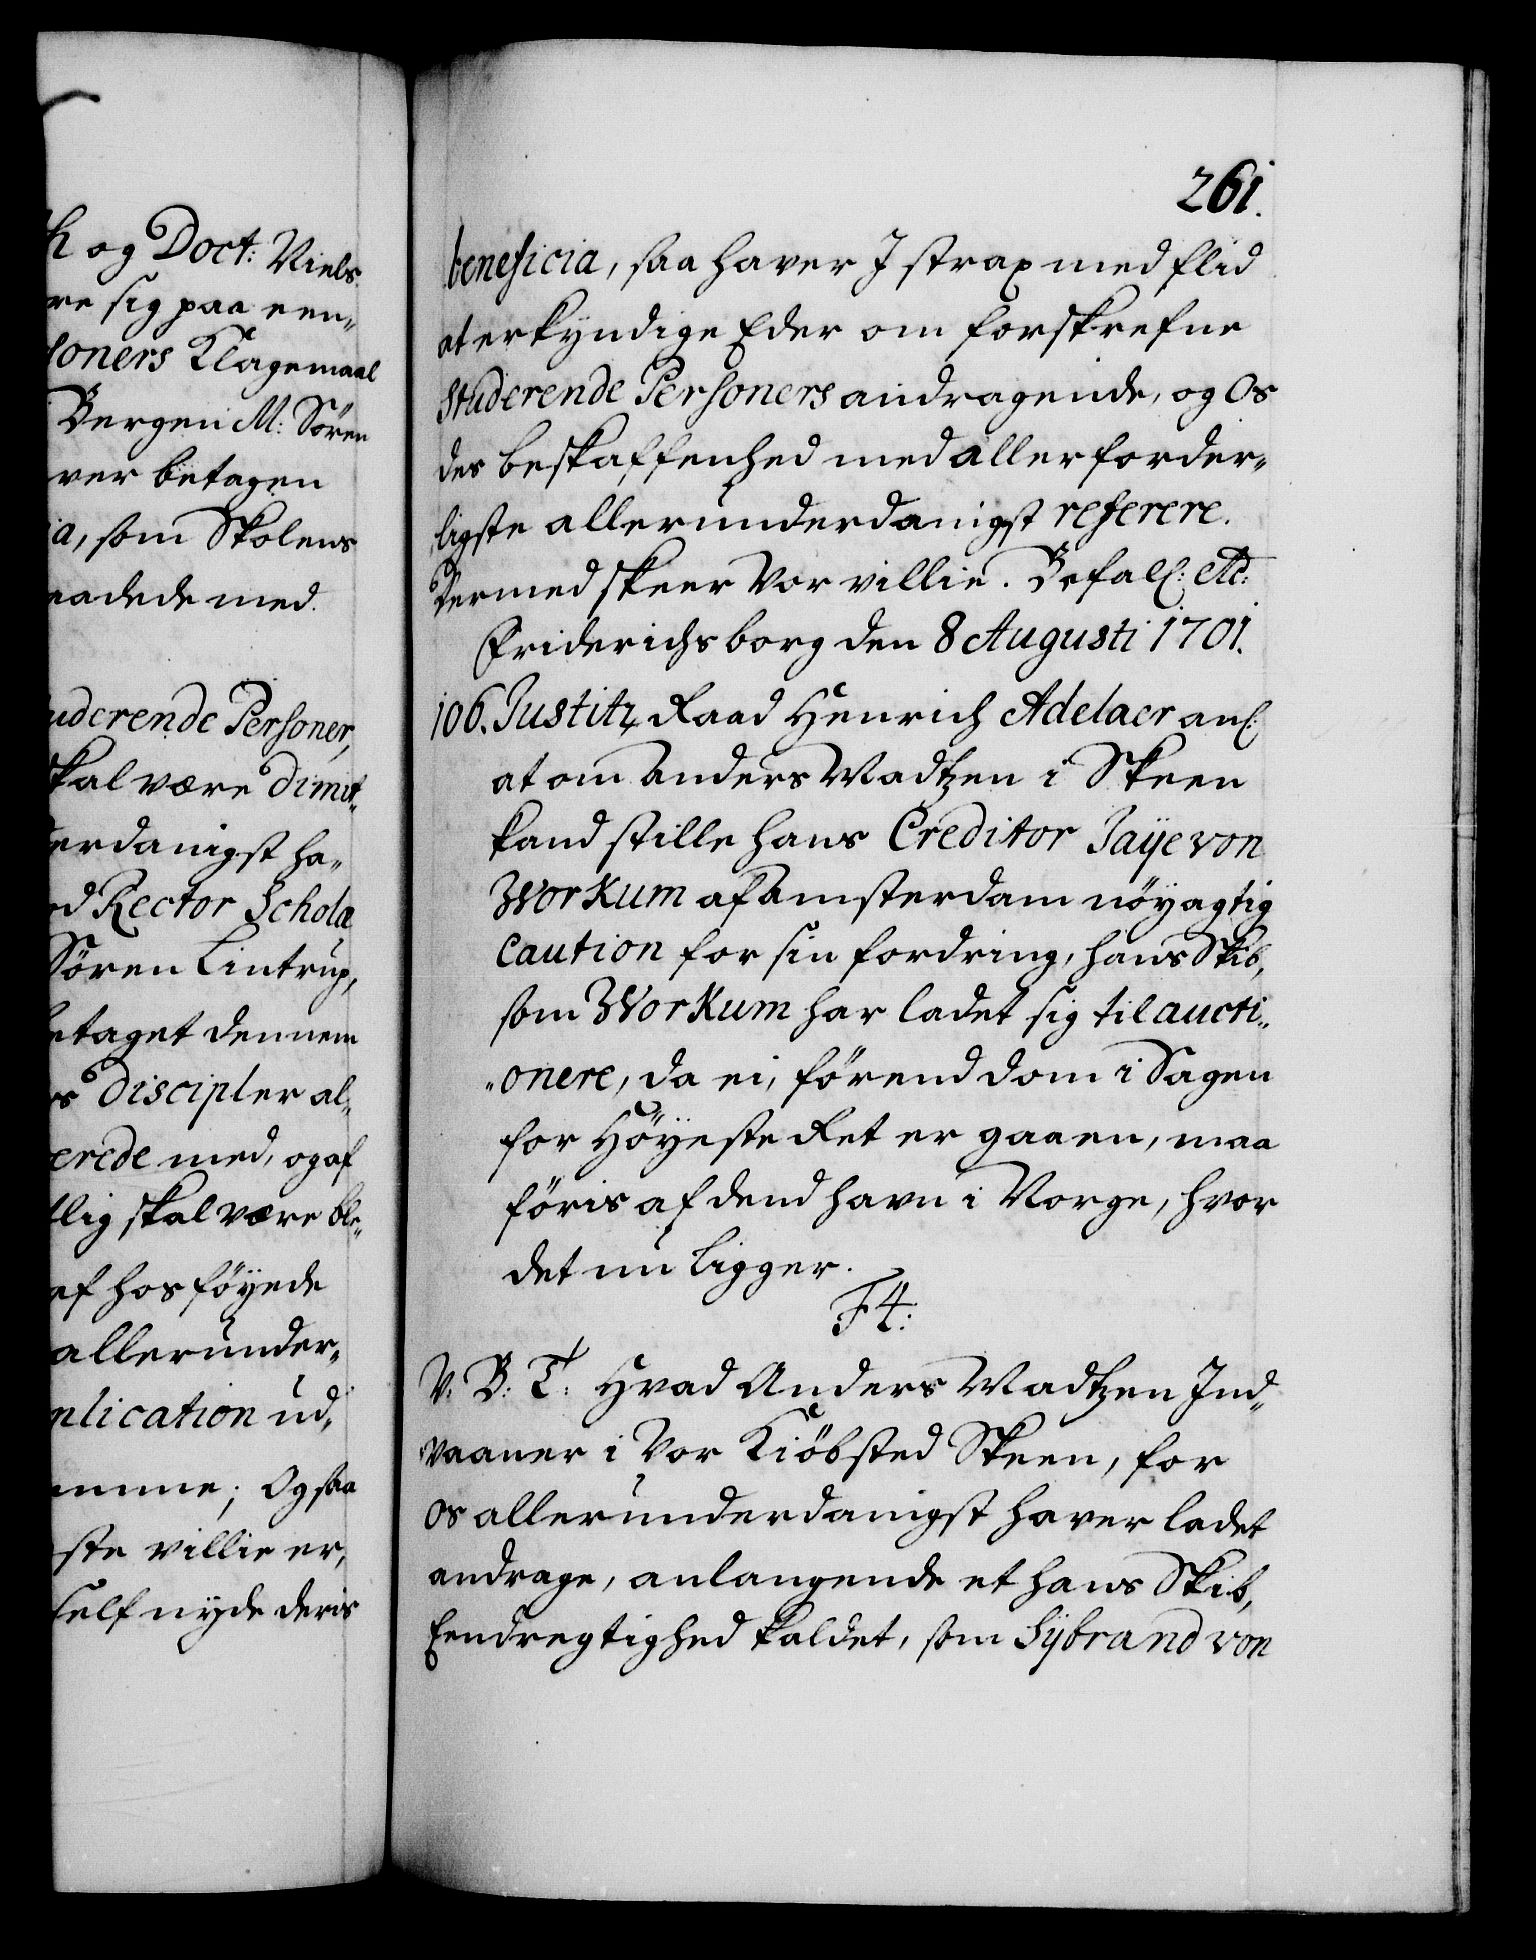 h og Doct: Niels
re sig paa een„
soners Klagemaal
Bergen M: Sören
ver betagen
ia, som Skolens
aadede med.
uderende Personer,
skal være dimit„
erdanigst ha„
ed Rector Schola
Sören Lintrup,
etaget dennem
s Discipler al„
erede med, og af
lig skal være ble„
af hosföyede
allerunder„
plication ud„
emme; Og saa
ste villie er,
self nyde deris
261.
beneficia, saa haver I strax med flid
at erkyndige Eder om forskrefne
Studerende Personers andragende, og Os
des beskaffenhed med allerforder„
ligste allerunderdanigst referere.
Dermed skeer Vor villie. Befall: etc:
Friderichsborg den 8 Augusti 1701.
106. Justitz Raad Henrich Adelaer anl:
at om Anders Madtzen i Skeen
kand stille hans Creditor Jaÿe von
Workum af Amsterdam nöyagtig
Caution for sin fordring, hans Skib,
som Workum har ladet sig til aucti„
„onere, da ei, förend dom i Sagen
for Höyeste Ret er gaaen, maa
föris af dend havn i Norge, hvor
det nu ligger.
F4:
V: B: T: Hvad Anders Madtzen Ind„
vaaner i Vor Kiöbsted Skeen, for
os allerunderdanigst haver ladet
andrage, anlangende et hans Skib,
Eendregtighed kaldet, som Sÿbrand von